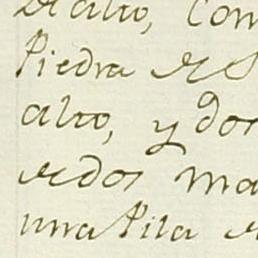 de alto, Com
Piedra de S
alto, y dos
de dos ma
una Pila d